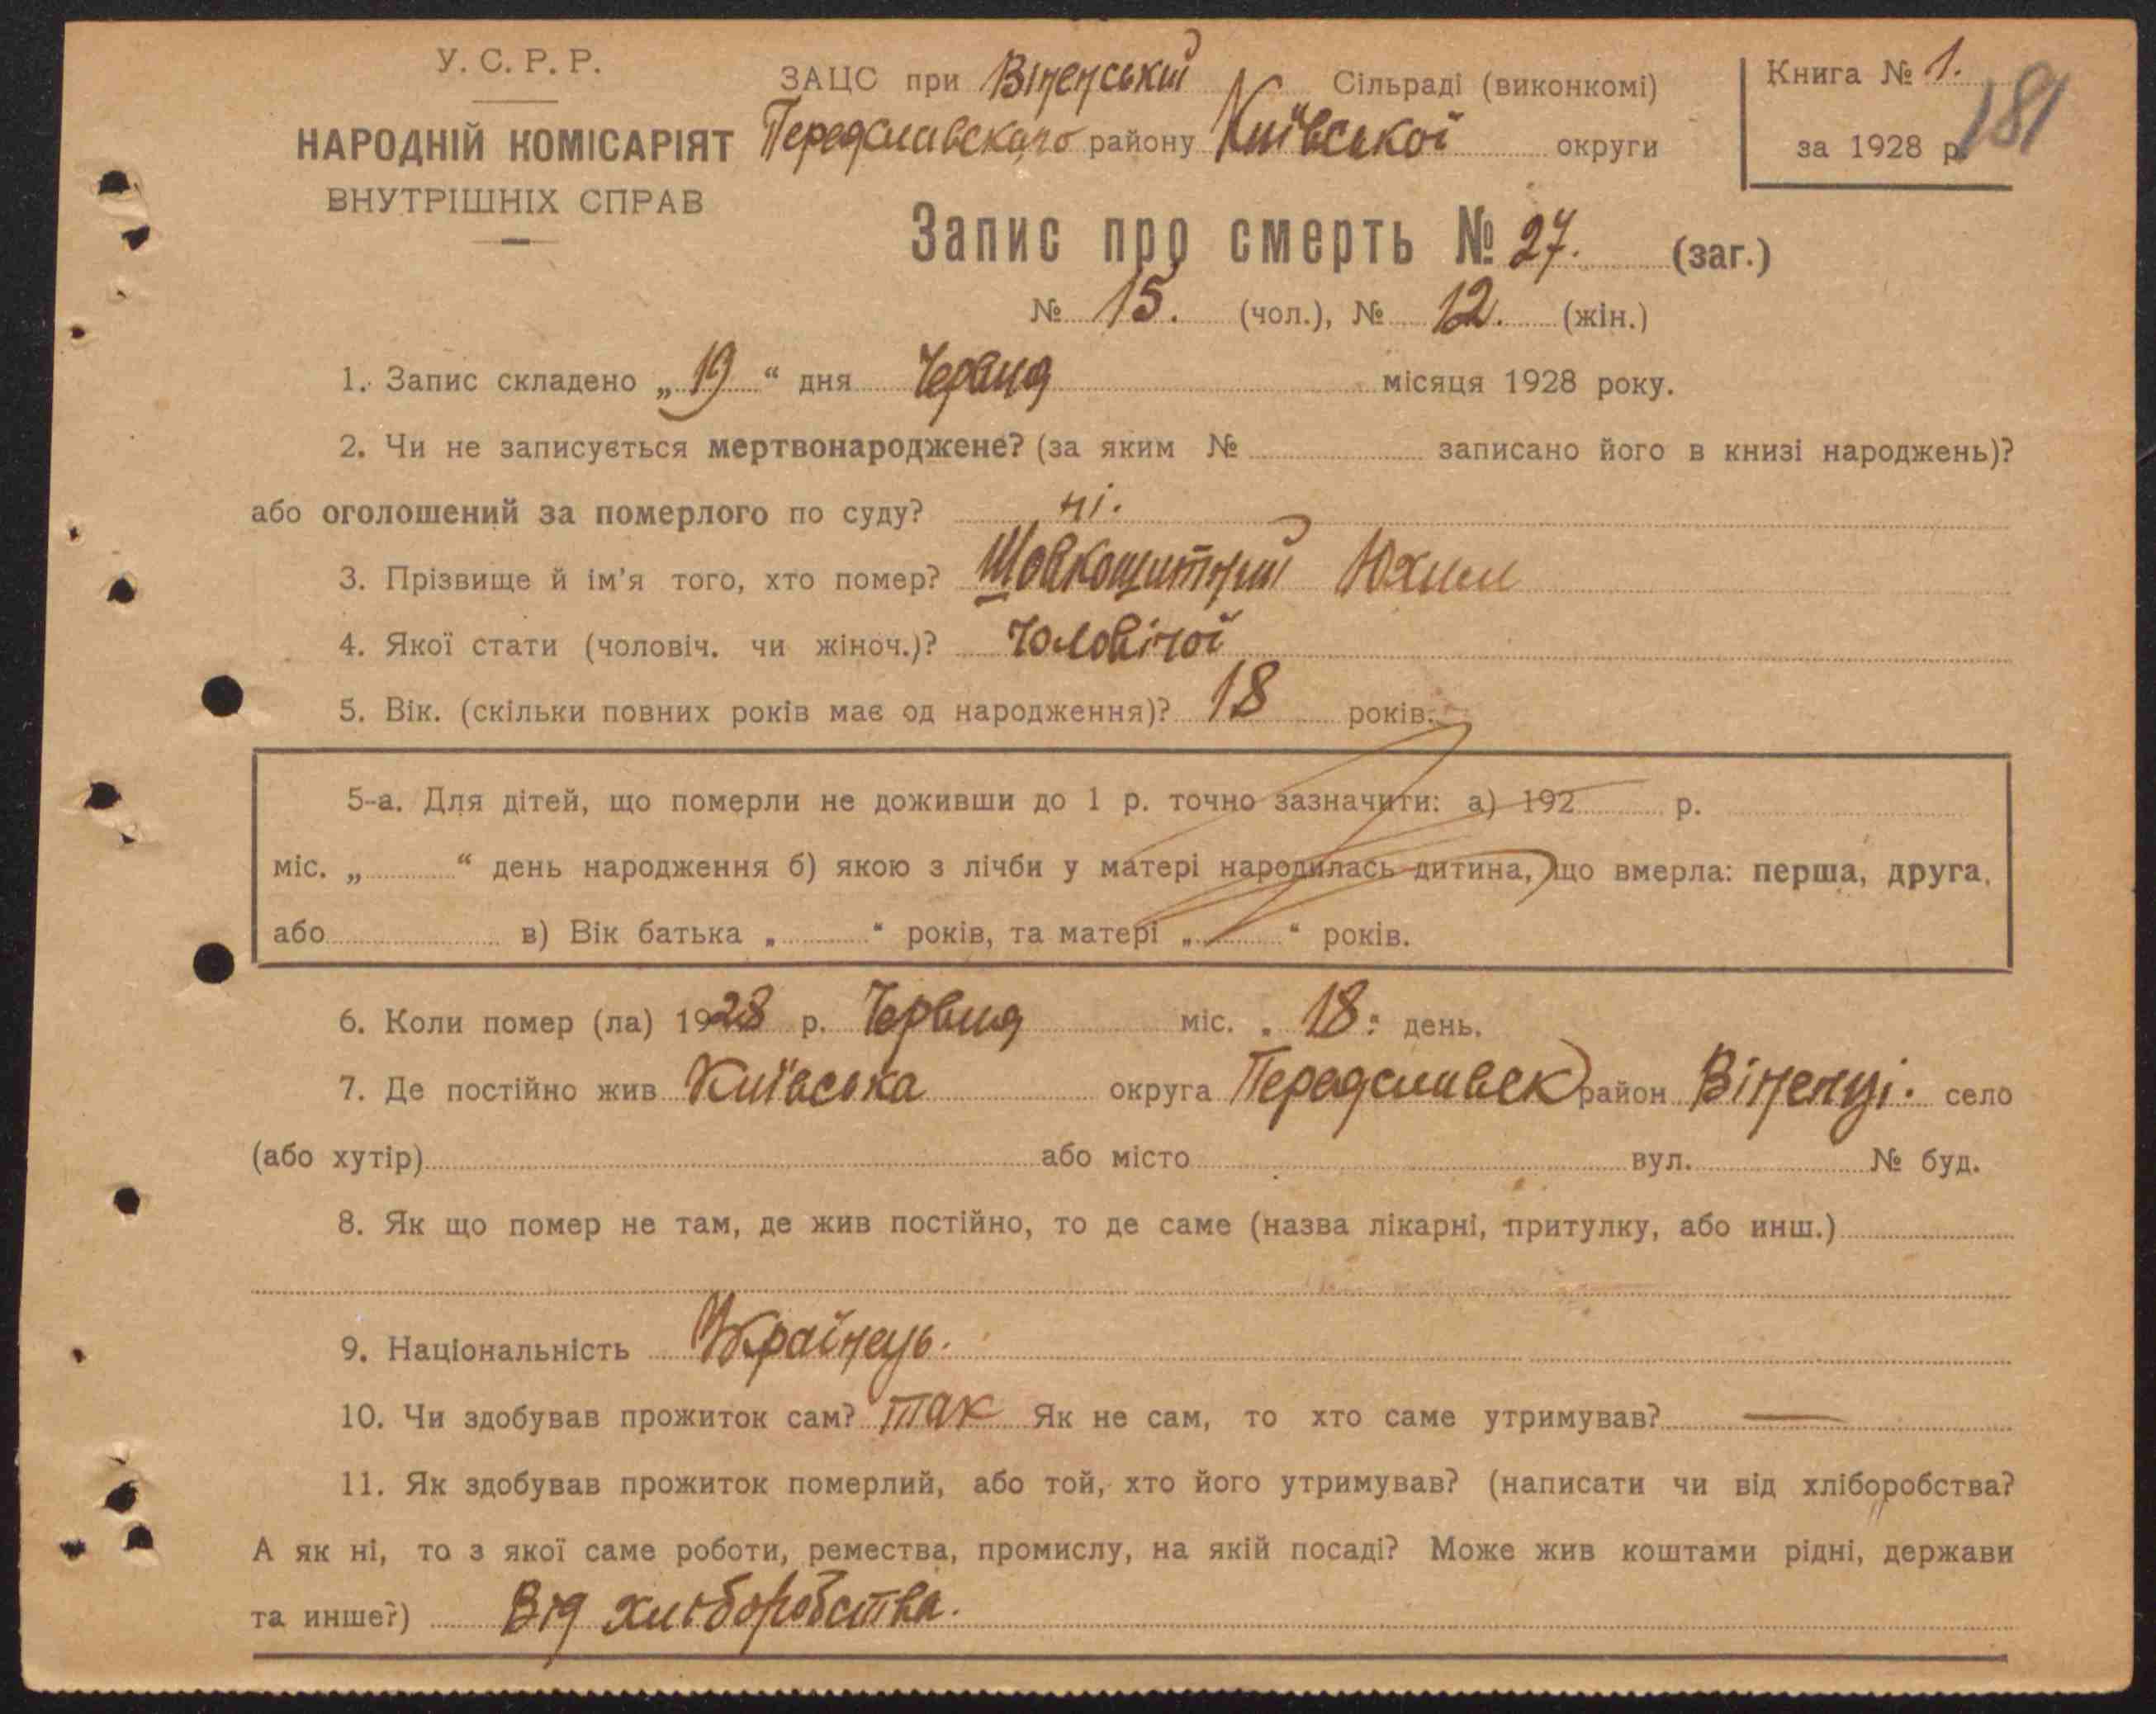 У. С. Р. Р.
НАРОДНІЙ КОМІСАРІЯТ
ВНУТРІШНІХ СПРАВ
ЗАЦС при Віненській Сільраді (виконкомі)
Передславского району Київської округи
Книга № 1.
за 1928 р.
181
Запис про смерть № 27. (заг.)
№ 15. (чол.), № 12. (жін.)
1. Запис складено „19“ дня Червця місяця 1928 року.
2. Чи не записується мертвонароджене? (за яким № записано його в книзі народжень)?
або оголошений за померлого по суду? ні.
3. Прізвище й ім'я того, хто помер? Шовкошитний Юхим
4. Якої стати (чоловіч. чи жіноч.)? чоловічої
5. Вік. (скільки повних років має од народження)? 18 років.
5-а. Для дітей, що померли не доживши до 1 р. точно зазначити: а) 192 р.
міс. „ “ день народження б) якою з лічби у матері народилась дитина, що вмерла: перша, друга,
або в) Вік батька „ “ років, та матері „ “ років.
6. Коли помер (ла) 1928 р. Червця міс. „18“ день.
7. Де постійно жив Київська округа Передславск район Віненці. село
(або хутір) або місто вул. № буд.
8. Як що помер не там, де жив постійно, то де саме (назва лікарні, притулку, або инш.)
9. Національність Українець.
10. Чи здобував прожиток сам? так Як не сам, то хто саме утримував? —
11. Як здобував прожиток померлий, або той, хто його утримував? (написати чи від хліборобства?
А як ні, то з якої саме роботи, ремества, промислу, на якій посаді? Може жив коштами рідні, держави
та инше?) Від хліборобства.